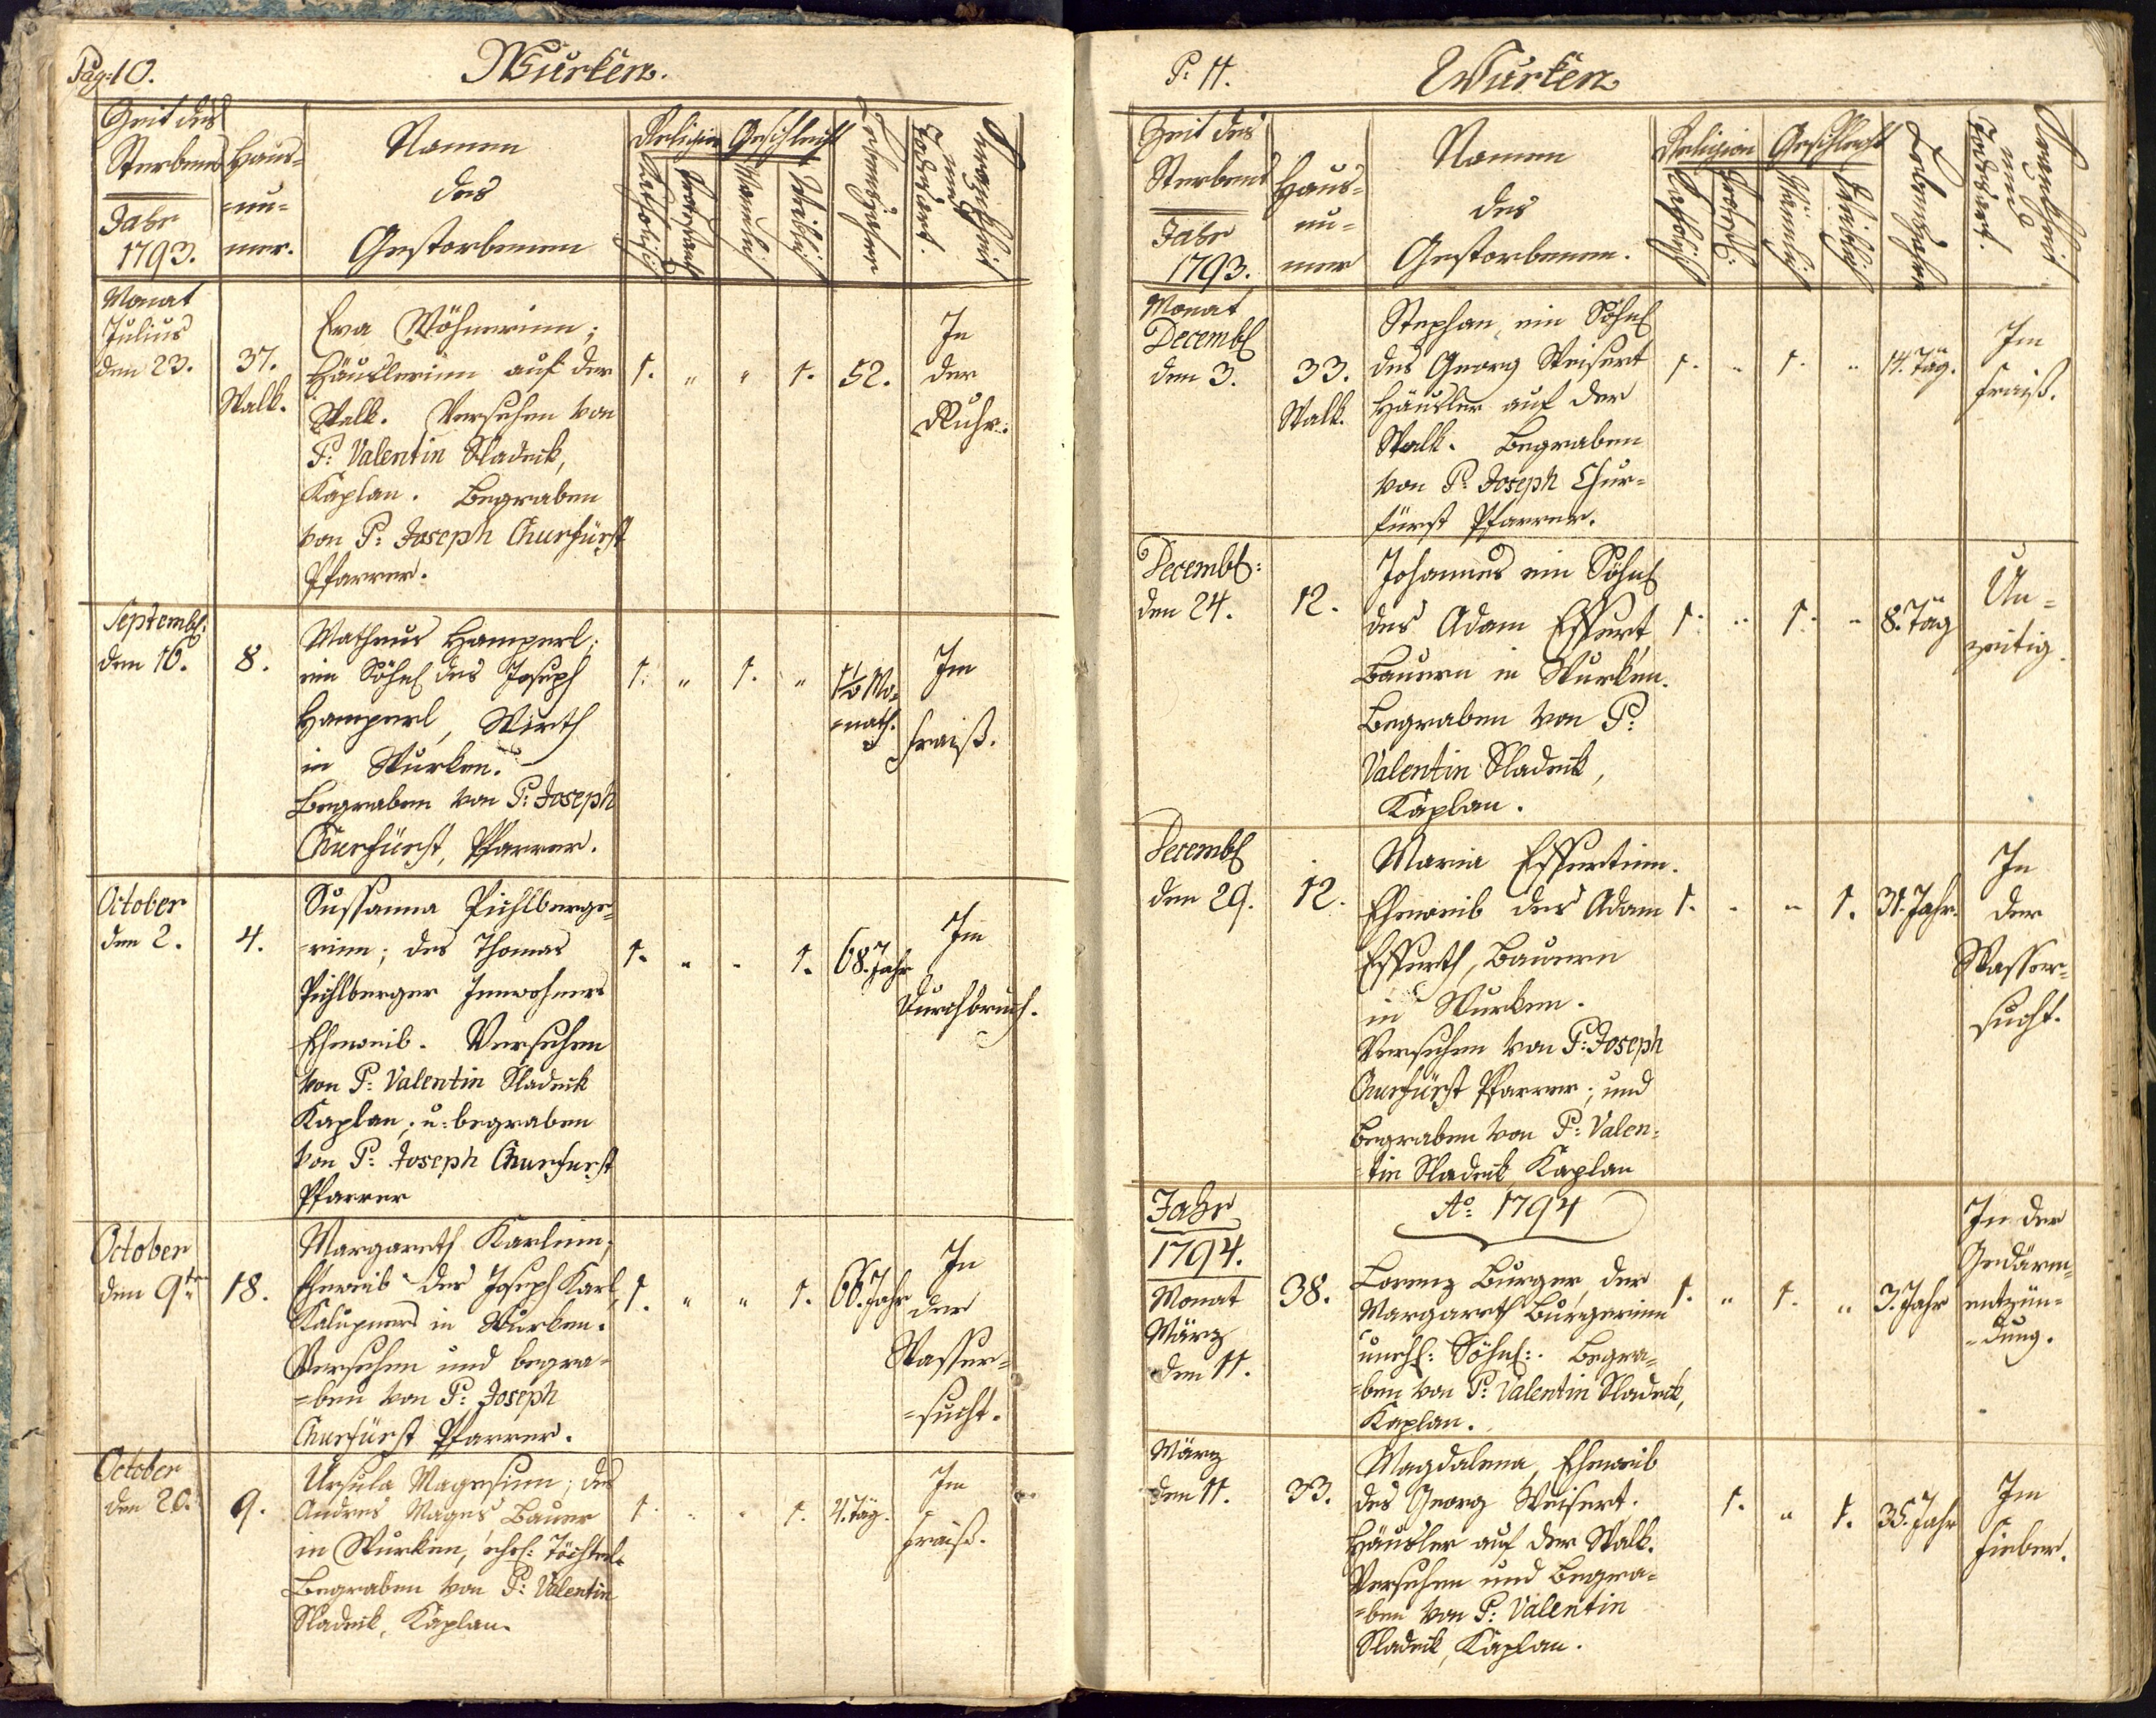 Pag: 10.
Wurken.
Zeit des
Sterbens
Jahr
1793.
Haus=
=nu=
mer.
Namen
des
Gestorbenen
Religion
Katholisch
Protestant
Geschlecht
Mänlich
Weiblich
Lebensjahre
Krankheit
und
Todesart.
Monat
Julius
den 23.
37.
Walk.
Eva Wöhnerinn;
Häuslerinn auf der
Walk. Versehen von
P: Valentin Sladeck,
Kaplan. Begraben
von P: Joseph Churfürst
Pfarrer.
1. " " 1. 52.
In
der
Ruhr.
Septembl:
den 16.
8.
Matheus Hamperl;
ein Söhnl des Joseph
Hamperl, Wirth
in Wurken.
Begraben von P: Joseph
Churfürst, Pfarrer.
1. " 1. "
1½ Mo=
=nath.
Im
Fraiß.
October
den 2.
4.
Sussanna Pichlberge=
=rinn; des Thomas
Pichlberger Innwohners
Eheweib. Versehen
von P: Valentin Sladeck
Kaplan; u: begraben
von P: Joseph Churfurst
Pfarrer
1. " " 1. 68. Jahr
Im
Durchbruch.
October
den 9ten
18.
Margareth Karlinn;
Eheweib des Joseph Karl,
Kalupners in Wurken.
Versehen und begra=
=ben von P: Joseph
Churfürst Pfarrer.
1. " " 1. 66. Jahr
In
der
Wasser=
=sucht.
October
den 20.
9.
Ursula Magesinn; des
Andres Mages Bauer
in Wurken, ehel: Töchterl.
Begraben von P: Valentin
Sladeck, Kaplan.
1. " " 1. 4. Täg.
Im
Fraiß.
P: 11.
Wurken
Zeit des
Sterbens
Jahr
1793.
Haus=
nu=
mer
Namen
des
Gestorbenen.
Religion
Katholisch
Protest:
Geschlecht
Mänlich
Weiblich
Lebensjahre
Krankheit
und
Todesart.
Monat
Decembl
den 3.
33.
Walk.
Stephan, ein Söhnl
des Georg Weisert
Häusler auf der
Walk. Begraben
von P. Joseph Chur=
fürst Pfarrer.
1. " 1. " 14. Täg.
Im
Fraiß.
Decembl:
den 24.
12.
Johannes ein Söhnl
des Adam Essert,
Bauern in Wurken.
Begraben von P:
Valentin Sladeck,
Kaplan.
1. " 1. " 8. Täg
Un=
zeitig.
Decembl
den 29.
12.
Maria Essertinn.
Eheweib des Adam
Esserth, Bauern
in Wurken.
Versehen von P: Joseph
Churfürst Pfarrer; und
begraben von P: Valen=
=tin Sladeck, Kaplan
1. " " 1. 31. Jahr.
In
der
Wasser=
sucht.
Jahr
1794.
Ao: 1794
Monat
März
den 11.
38.
Lorenz Burger, der
Margareth Burgerinn
unehl: Söhnl:. Begra=
=ben von P: Valentin Sladeck,
Kaplan.
1. " 1. " 3. Jahr
In der
Gedärm=
entzün=
=dung.
März
den 11.
33.
Magdalena, Eheweib
des Georg Weisert.
Häusler auf der Walk.
Versehen und Begra=
=ben von P: Valentin
Sladeck, Kaplan.
1. " 1. 35. Jahr
Im
Fieber.